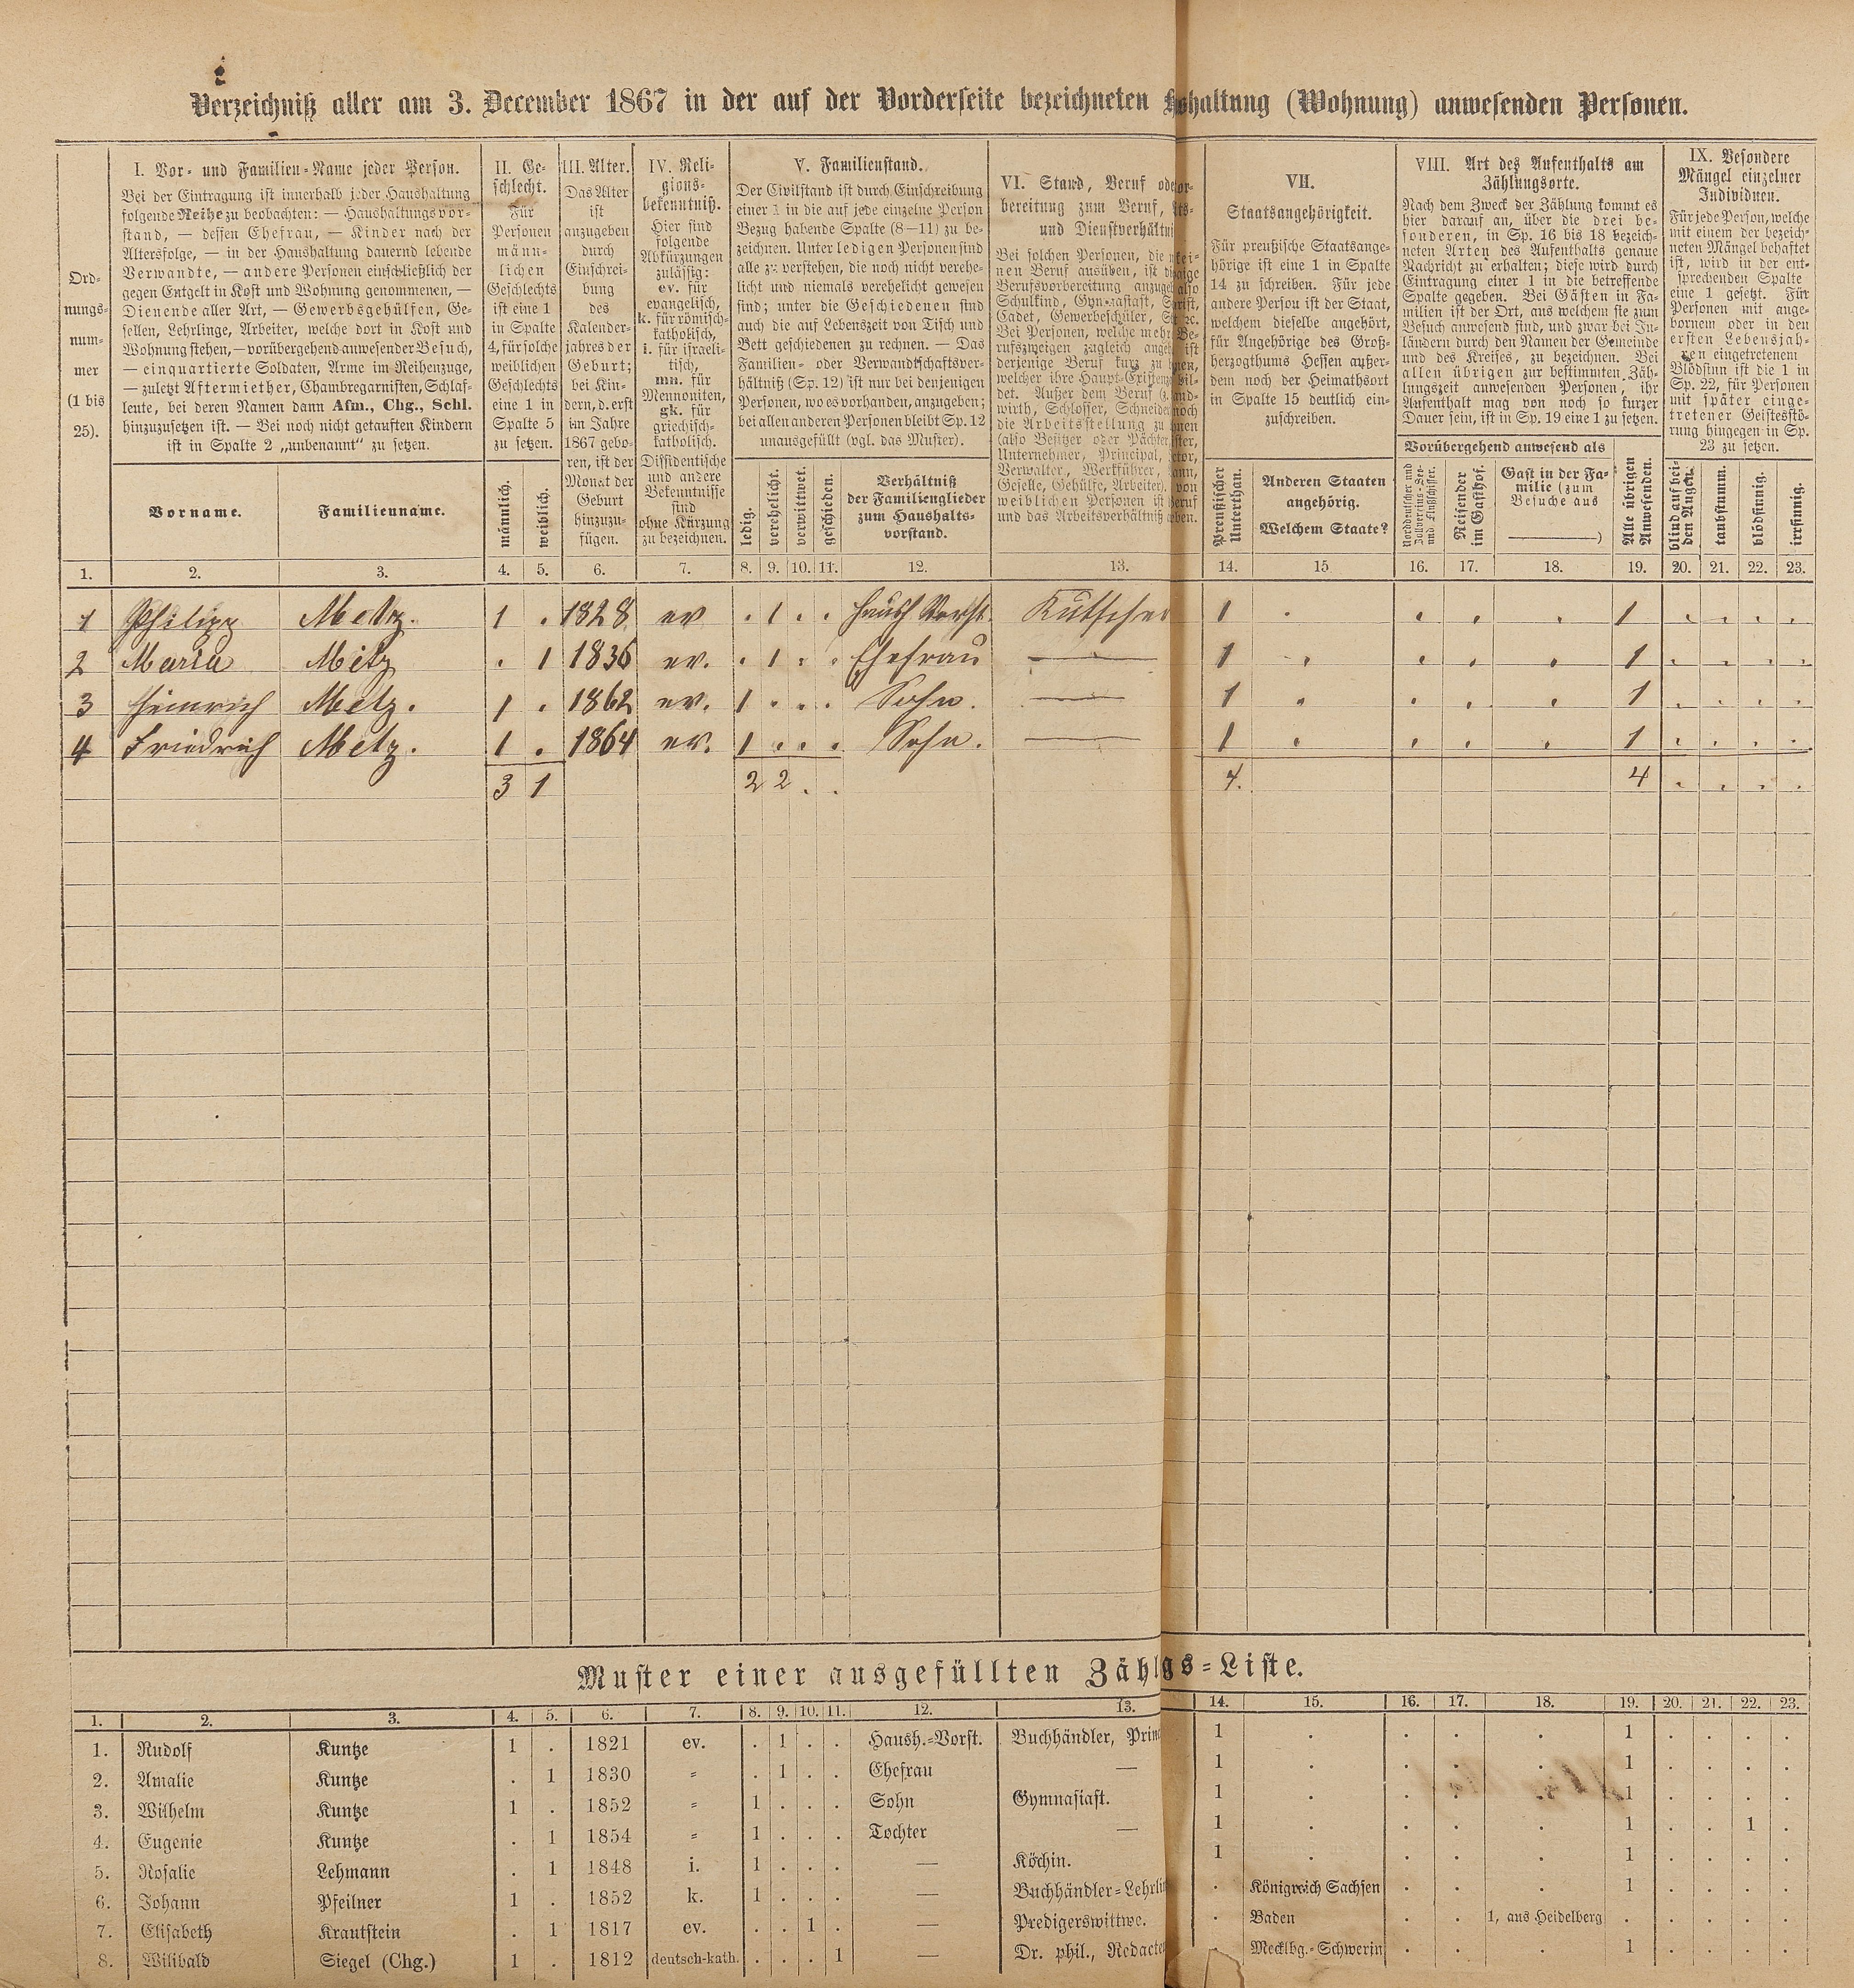 Verzeichniß aller am 3. December 1867 in der auf der Vorderseite bezeichneten haltung (Wohnung) anwesenden Personen.
Ord-
nungs-
num-
mer
(1 bis
25).
I. Vor- und Familien-Name jeder Person.
Bei der Eintragung ist innerhalb jeder Haushaltung
folgende Reihe zu beobachten: — Haushaltungsvor-
stand, — dessen Ehefrau, — Kinder nach der
Altersfolge, — in der Haushaltung dauernd lebende
Verwandte, — andere Personen einschließlich der
gegen Entgelt in Kost und Wohnung genommenen, —
Dienende aller Art, — Gewerbsgehülfen, Ge-
sellen, Lehrlinge, Arbeiter, welche dort in Kost und
Wohnung stehen, — vorübergehend anwesender Besuch,
— einquartierte Soldaten, Arme im Reihenzuge,
— zuletzt Aftermiether, Chambregarnisten, Schlaf-
leute, bei deren Namen dann Afm., Chg., Schl.
hinzuzusetzen ist. — Bei noch nicht getauften Kindern
ist in Spalte 2 „unbenannt“ zu setzen.
Vorname.
Familienname.
II. Ge-
schlecht.
Für
Personen
männ-
lichen
Geschlechts
ist eine 1
in Spalte
4, für solche
weiblichen
Geschlechts
eine 1 in
Spalte 5
zu setzen.
männlich.
weiblich.
III. Alter.
Das Alter
ist
anzugeben
durch
Einschrei-
bung
des
Kalender-
jahres der
Geburt;
bei Kin-
dern, d. erst
im Jahre
1867 gebo-
ren, ist der
Monat der
Geburt
hinzuzu-
fügen.
IV. Reli-
gions-
bekenntniß.
Hier sind
folgende
Abkürzungen
zulässig:
ev. für
evangelisch,
k. für römisch-
katholisch,
i. für israeli-
tisch,
mn. für
Mennoniten,
gk. für
griechisch-
katholisch.
Dissidentische
und andere
Bekenntnisse
sind
ohne Kürzung
zu bezeichnen.
V. Familienstand.
Der Civilstand ist durch Einschreibung
einer 1 in die auf jede einzelne Person
Bezug habende Spalte (8—11) zu be-
zeichnen. Unter ledigen Personen sind
alle zu verstehen, die noch nicht verehe-
licht und niemals verehelicht gewesen
sind; unter die Geschiedenen sind
auch die auf Lebenszeit von Tisch und
Bett geschiedenen zu rechnen. — Das
Familien- oder Verwandtschaftsver-
hältniß (Sp. 12) ist nur bei denjenigen
Personen, wo es vorhanden, anzugeben;
bei allen anderen Personen bleibt Sp. 12
unausgefüllt (vgl. das Muster).
ledig.
verehelicht.
verwittwet.
geschieden.
Verhältniß
der Familienglieder
zum Haushalts-
vorstand.
VI. Stand, Beruf oder
bereitung zum Beruf,
und Dienstverhältni
Bei solchen Personen, die
nen Beruf ausüben, ist
Berufsvorbereitung
Schulkind, Gymnasiast,
Cadet, Gewerbeschüler,
Bei Personen, welche mehr
rufszweigen zugleich
derjenige Beruf kurz zu
welcher ihre Haupt-Existenz
det. Außer dem Beruf
wirth, Schlosser, Schneider
die Arbeitsstellung zu
(also Besitzer oder Pächter,
Unternehmer, Principal,
Verwalter, Werkführer,
Geselle, Gehülfe, Arbeiter).
weiblichen Personen ist
und das Arbeitsverhältniß
VII.
Staatsangehörigkeit.
Für preußische Staatsange-
hörige ist eine 1 in Spalte
14 zu schreiben. Für jede
andere Person ist der Staat,
welchem dieselbe angehört,
für Angehörige des Groß-
herzogthums Hessen außer-
dem noch der Heimathsort
in Spalte 15 deutlich ein-
zuschreiben.
Preußischer
Unterthan.
Anderen Staaten
angehörig.
Welchem Staate?
VIII. Art des Aufenthalts am
Zählungsorte.
Nach dem Zweck der Zählung kommt es
hier darauf an, über die drei be-
sonderen, in Sp. 16 bis 18 bezeich-
neten Arten des Aufenthalts genaue
Nachricht zu erhalten; diese wird durch
Eintragung einer 1 in die betreffende
Spalte gegeben. Bei Gästen in Fa-
milien ist der Ort, aus welchem sie zum
Besuch anwesend sind, und zwar bei In-
ländern durch den Namen der Gemeinde
und des Kreises, zu bezeichnen. Bei
allen übrigen zur bestimmten Zäh-
lungszeit anwesenden Personen, ihr
Aufenthalt mag von noch so kurzer
Dauer sein, ist in Sp. 19 eine 1 zu setzen.
Vorübergehend anwesend als
Norddeutscher und
Zollvereins-See-
und Flußschiffer.
Reisender
im Gasthof.
Gast in der Fa-
milie (zum
Besuche aus
)
Alle übrigen
Anwesenden.
IX. Besondere
Mängel einzelner
Individuen.
Für jede Person, welche
mit einem der bezeich-
neten Mängel behaftet
ist, wird in der ent-
sprechenden Spalte
eine 1 gesetzt. Für
Personen mit ange-
bornem oder in den
ersten Lebensjah-
ren eingetretenem
Blödsinn ist die 1 in
Sp. 22, für Personen
mit später einge-
tretener Geistesstö-
rung hingegen in Sp.
23 zu setzen.
blind auf bei-
den Augen.
taubstumm.
blödsinnig.
irrsinnig.
1. 2. 3. 4. 5. 6. 7. 8. 9. 10. 11. 12. 13. 14. 15 16. 17. 18. 19. 20. 21. 22. 23.
1 Philipp Metz. 1 . 1828 ev . 1 . . Haush Vorst. Kutscher 1 . . . . 1 . . . .
2 Maria Metz . 1 1836 ev. . 1 . . Ehefrau — 1 . . . . 1 . . . .
3 Heinrich Metz. 1 . 1862 ev. 1 . . . Sohn. — 1 . . . . 1 . . . .
4 Friedrich Metz. 1 . 1864 ev. 1 . . . Sohn. — 1 . . . . 1 . . . .
3 1 2 2 . . 4. 4 . . . .
Muster einer ausgefüllten Zähl gs-Liste.
1. 2. 3. 4. 5. 6. 7. 8. 9. 10. 11. 12. 13. 14. 15. 16. 17. 18. 19. 20. 21. 22. 23.
1. Rudolf Kuntze 1 . 1821 ev. . 1 . . Haush.-Vorst. Buchhändler, Prin 1 . . . . 1 . . . .
2. Amalie Kuntze . 1 1830 " . 1 . . Ehefrau — 1 . . . . 1 . . . .
3. Wilhelm Kuntze 1 . 1852 " 1 . . . Sohn Gymnasiast. 1 . . . . 1 . . . .
4. Eugenie Kuntze . 1 1854 " 1 . . . Tochter — 1 . . . . 1 . . 1 .
5. Rosalie Lehmann . 1 1848 i. 1 . . . — Köchin. 1 . . . . 1 . . . .
6. Johann Pfeilner 1 . 1852 k. 1 . . . — Buchhändler-Lehrlin . Königreich Sachsen . . . 1 . . . .
7. Elisabeth Krautstein . 1 1817 ev. . . 1 . — Predigerswittwe. . Baden . . 1, aus Heidelberg . . . . .
8. Wilibald Siegel (Chg.) 1 . 1812 deutsch-kath. . . . 1 — Dr. phil., Redacte . Mecklbg.-Schwerin . . . 1 . . . .